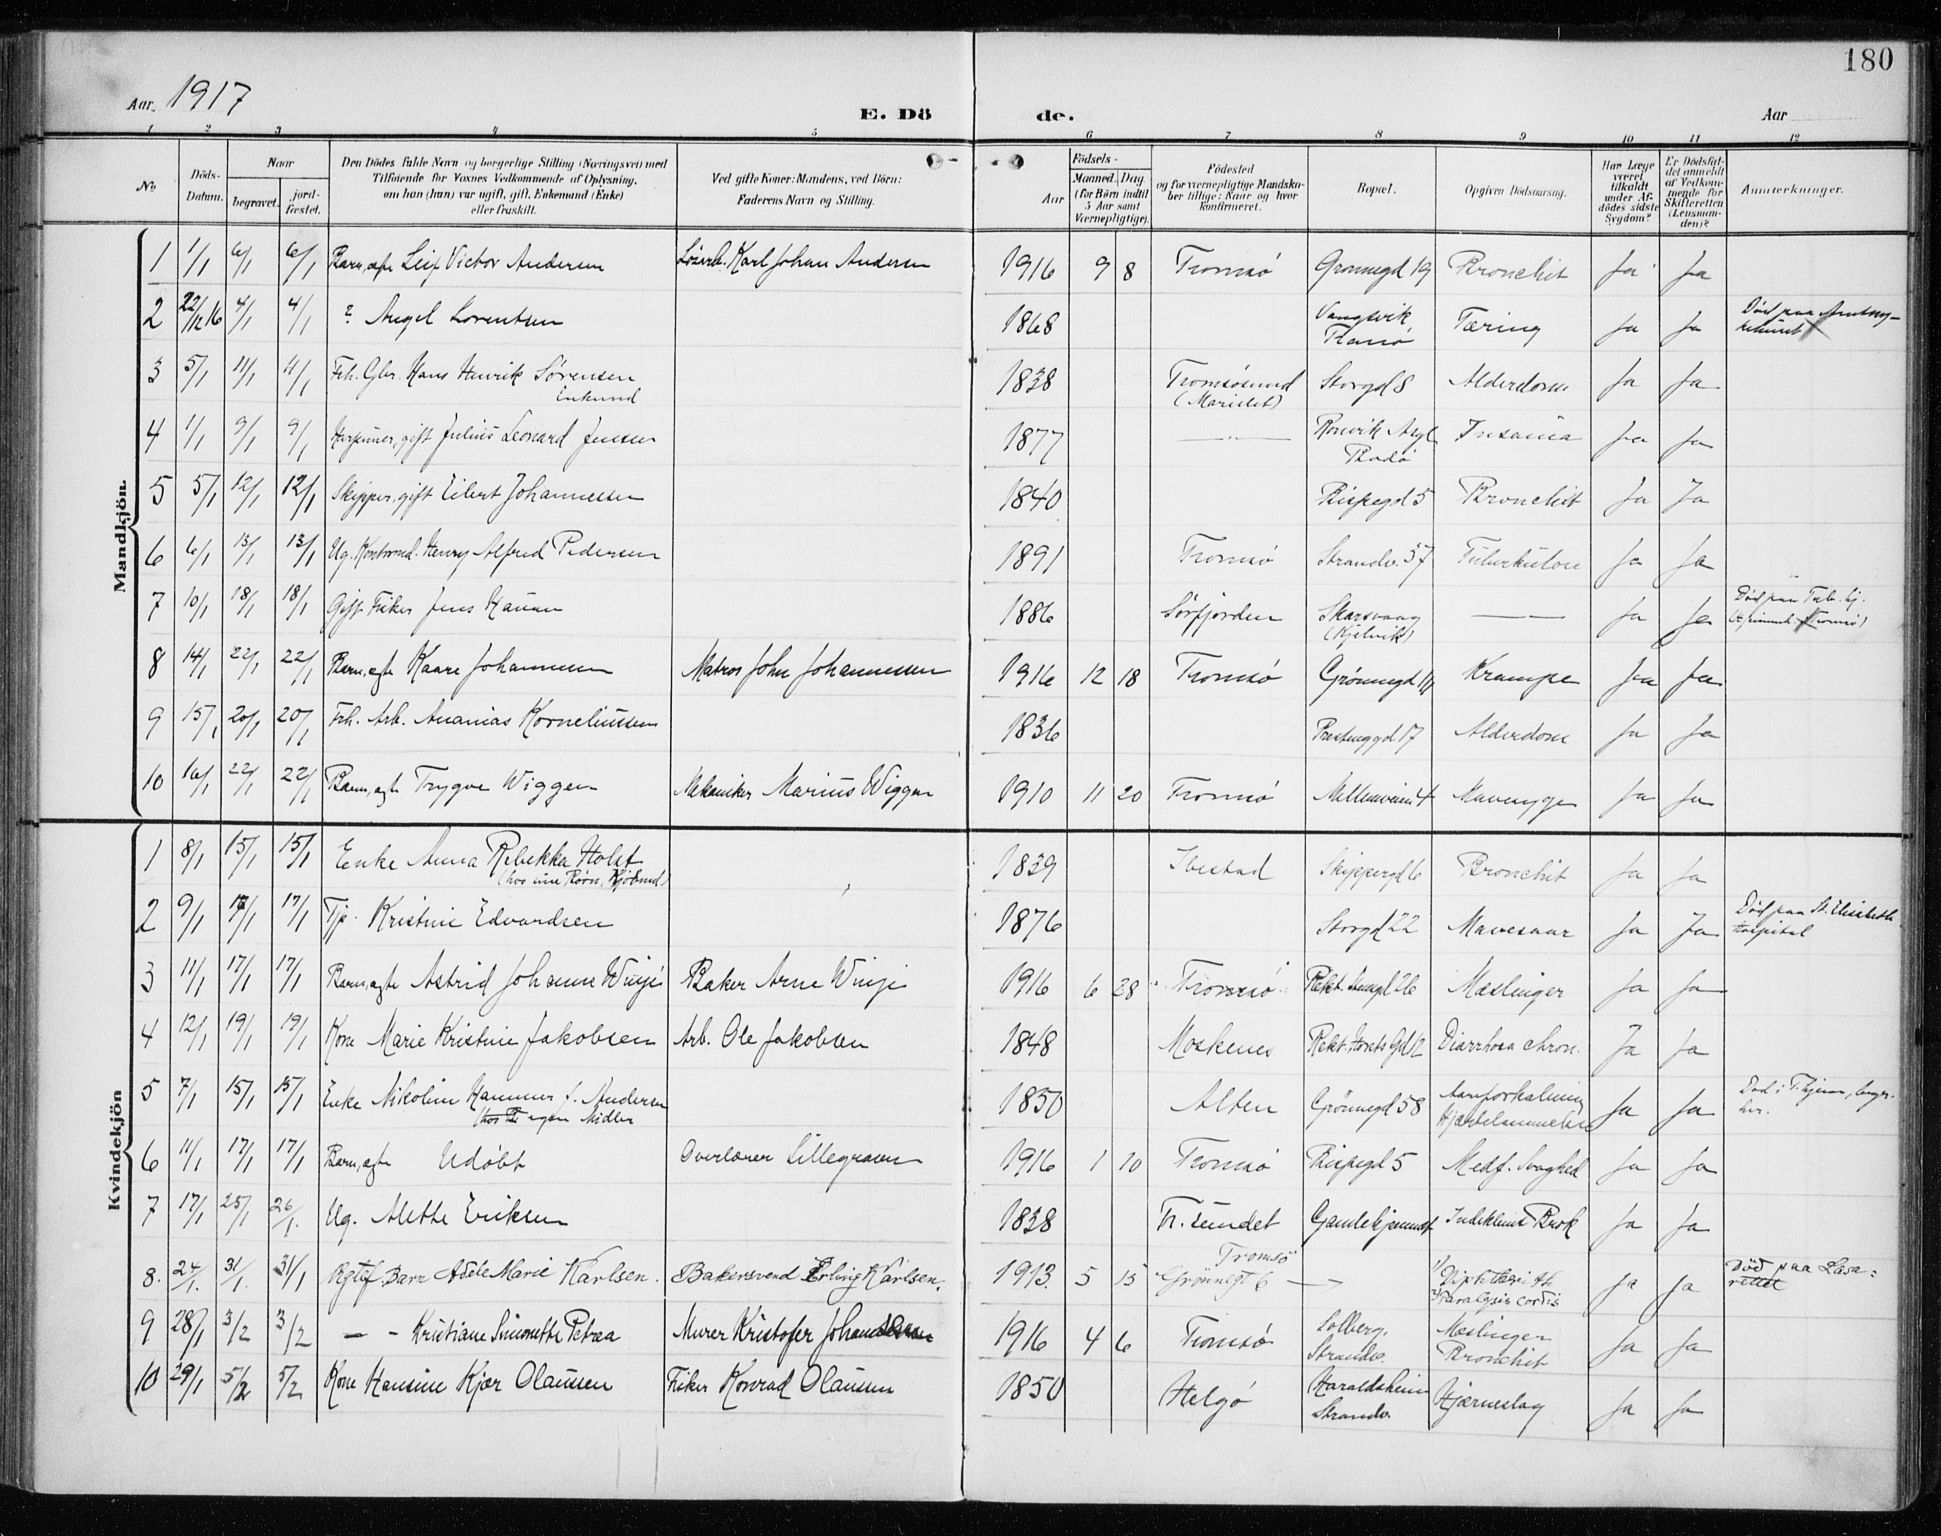 180
Aar. 1917
E. Dö de.
Aar
1 2 3 4 5 6 7 8 9 10 11 12
No.
Döds-Datum.
Naar
begravet.
jordfæstet.
Den Dödes fulde Navn og borgerlige Stilling (Næringsvei) med
Tilföiende for Voxnes Vedkommende af Oplysning,
om han (hun) var ugift, gift, Enkemand (Enke)
eller fraskilt.
Ved gifte Koner: Mandens, ved Börn:
Faderens Navn og Stilling.
Födsels-
Aar
Maaned. Dag.
(for Börn indtil
5 Aar samt
Værnepligtige).
Födested
og for værnepligtige Mandska-
ber tillige: Naar og hvor
konfirmeret.
Bopæl.
Opgiven Dödsaarsag.
Har Læge
været
tilkaldt
under Af-
dödes sidste
Sygdom?
Er Dödsfal-
det anmeldt
af Vedkom-
mende for
Skifteretten
(Lensman-
den)?
Anmærkninger.
Mandkjön.
1 1/1 6/1 6/1 Barn, ægte Leif Victor Andersen Karl Johan Andersen 1916 9 8 Tromsø Grønnegd 19 Bronchit Ja Ja
2 22/12 16 4/1 4/1 ? Angel Lorentsen 1868 Vangsvik, Tranø Tæring Ja Ja Død paa
3 5/1 11/1 11/1 Fhv. Gbr. Hans Henrik Sørensen
Enkemd 1838 Tromsøsund Storgd 8 Alderdom Ja Ja
4 1/1 9/1 9/1 Harpuner, gift Julius Leonard Jensen 1877 — " — Ronvik Asyl
Bodø Insania Ja Ja
5 5/1 12/1 12/1 Skipper, gift Eilert Johannessen 1840 Bispegd 5 Bronchit Ja Ja
6 6/1 13/1 13/1 Ug. Kontormd. Henry Alfred Pedersen 1891 Tromsø Strandv. 57 Tuberkulose Ja Ja
7 10/1 18/1 18/1 Gift Fisker Jens Hansen 1886 Sørfjorden Skarsvaag
(Kjelvik) — " — Ja Ja Død paa Tub. hj.
8 14/1 22/1 22/1 Barn, ægte Kaare Johannessen Matros John Johannessen 1916 12 18 Tromsø Grønnegd Krampe Ja Ja
9 15/1 20/1 20/1 Fhv. Arb. Ananias Korneliussen 1836 17 Alderdom Ja Ja
10 16/1 22/1 22/1 Barn, ægte Trygve Wiggen Mekaniker Marius Wiggen 1910 11 20 Tromsø Mellemveien 4 Mavesyge Ja Ja
Kvindekjön
1 8/1 15/1 15/1 Enke Anna Rebekka Holst
(hos sine Børn, Kjøbmd) 1839 Ibestad Skippergd 6 Bronchit Ja Ja
2 9/1 17/1 17/1 Tjp. Kristine Edvardsen 1876 Storgd 22 Mavesaar Ja Ja Død paa St. Elisabeth
Hospital
3 11/1 17/1 17/1 Barn, ægte Astrid Johanne Winje Baker Arne Winje 1916 6 28 Tromsø Rekt. 26 Mæslinger Ja Ja
4 12/1 19/1 19/1 Kone Marie Kristine Jakobsen Arb. Ole Jakobsen 1848 Moskenes Rekt. Horsts Gd 12 Diarrhoea chron. Ja Ja
5 7/1 15/1 15/1 Enke Nikoline Hammer f. Andersen
egne Midler 1850 Alten Grønnegd 58 Aareforkalkning
Hjertelammelse Ja Ja Død i
6 11/1 17/1 17/1 Barn, ægte Udøbt Overlærer Lillegraven 1916 1 10 Tromsø Bispegd 5 Medf. Svaghed Ja Ja
7 17/1 25/1 26/1. Ug. Alette Eriksen 1838 Tr. sundet Gamlehjemmet Indeklemt Brok Ja Ja
8. 24/1. 31/1. 31/1 Ægtef. Barn Adele Marie Karlsen. Bakersvend Erling Karlsen. 1913. 5 15 Tromsø
Grønnegt 6 — " — 1) Diphtheri
2) Paralysis cordis Ja Ja Død paa Lasa-
rettet
9 28/1 3/2 3/2 — - Kristiane Simonette Petrea Murer Kristofer Johansen 1916 4 6 Tromsø Solberg,
Strandv. Mæslinger
Bronchit Ja Ja
10 29/1 5/2 5/2 Kone Hansine Kjær Olaussen Fisker Konrad Olaussen 1850 Helgø Haraldsheim
Strandv. Hjerneslag Ja Ja